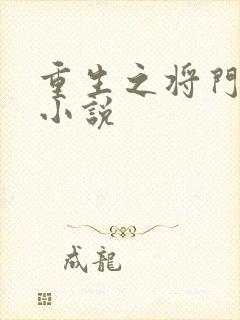 重生之将門
小說
成龍